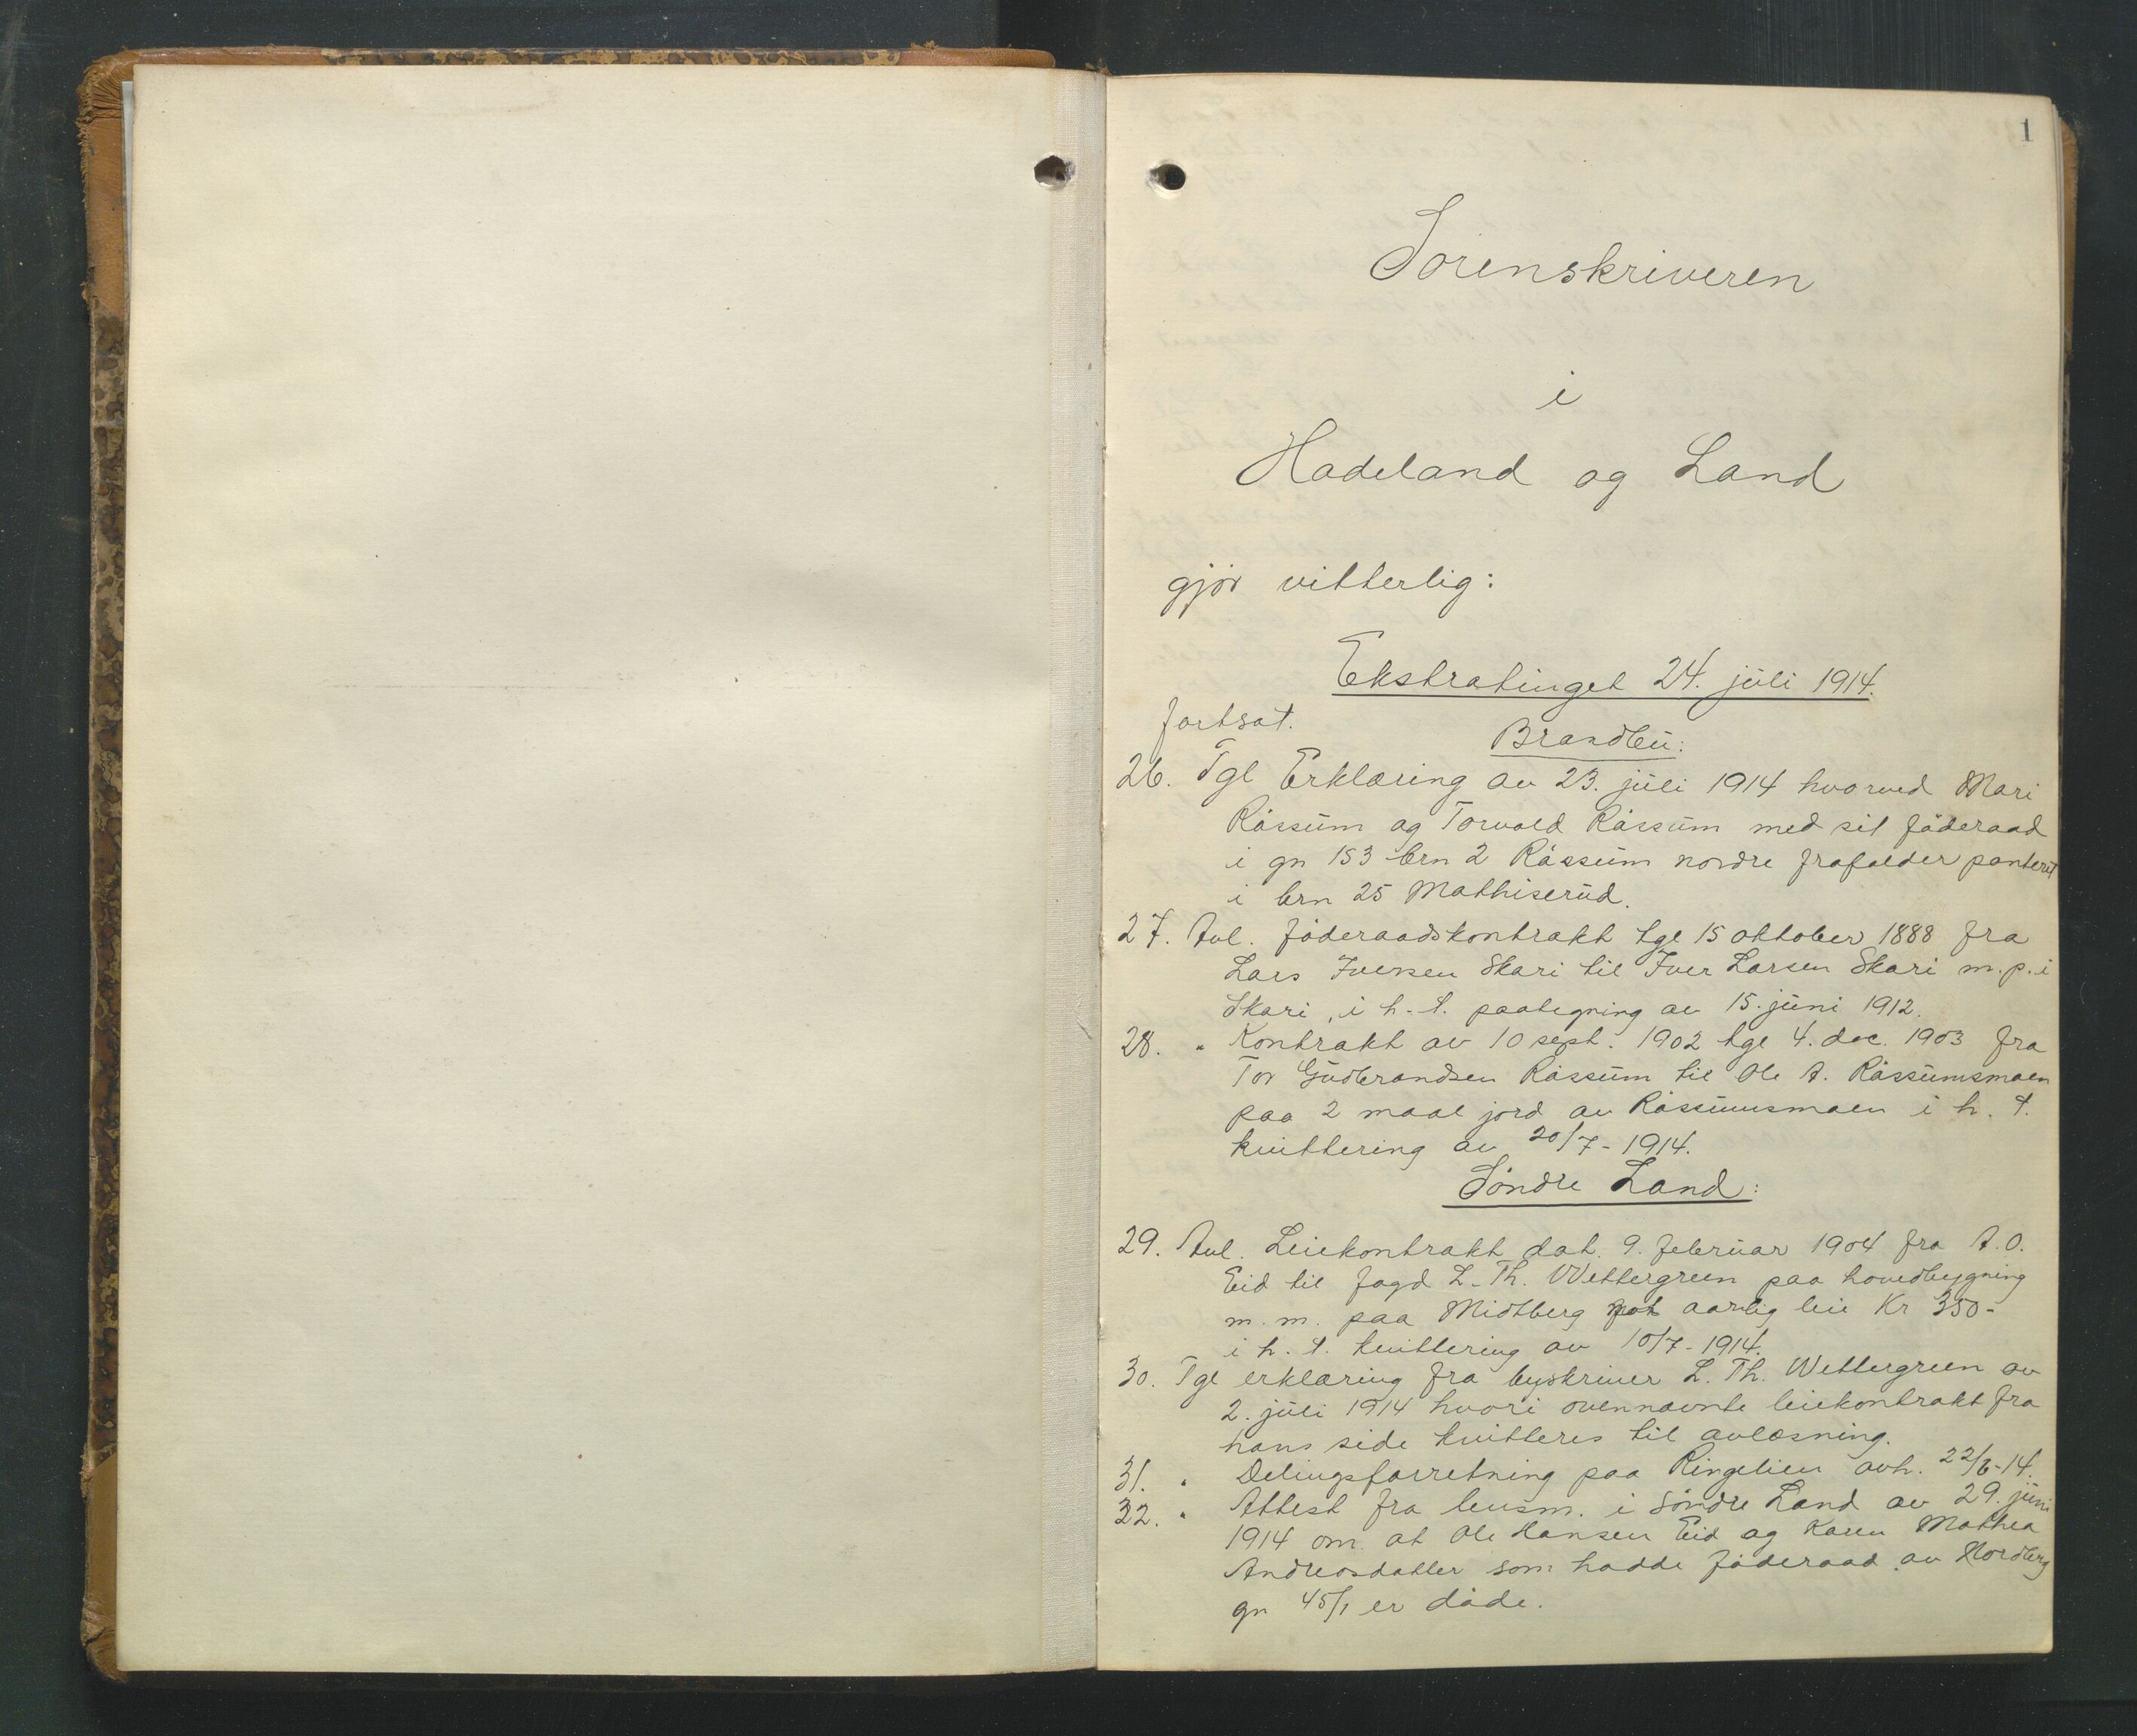 1
Sorenskriveren
i
Hadeland og Land
gjør vitterlig:
Ekstratinget 24. juli 1914.
fortsat.
Brandbu:
26. Tgl Erklæring av 23. juli 1914 hvorved Mari
Røssum og Torvald Røssum med sit føderaad
i gn 153 brn 2 Røssum nordre frafalder panteret
i brn 25 Mathiserud.
27. Avl. føderaadskontrakt tgl 15 oktober 1888 fra
Lars Iversen Skari til Iver Larsen Skari m.p. i
Skari, i h. t. paategning av 15. juni 1912.
28. " Kontrakt av 10 sept. 1902 tgl 4. dec. 1903 fra
Tor Gudbrandsen Røssum til Ole A. Røssumsmoen
paa 2 maal jord av Røssumsmoen i h. t.
kvittering av 20/7 - 1914.
Søndre Land:
29. Avl. Leiekontrakt dat. 9. februar 1904 fra A. O.
Eid til fogd L. Th. Wettergreen paa hovedbygning
m. m. paa Midtberg mot aarlig leie Kr 350-
i h. t. kvittering av 10/7 - 1914.
30. Tgl erklæring fra byskriver L. Th. Wettergreen av
2. juli 1914 hvori ovennævnte leiekontrakt fra
hans side kvitteres til avlæsning.
31. " Delingsforretning paa Ringelien avh. 22/6-14.
32. " Attest fra lensm. i Søndre Land av 29. juni
1914 om at Ole Hansen Eid og Karen Mathea
Andreasdatter som hadde føderaad av Nordberg
gn 45/1 er døde.